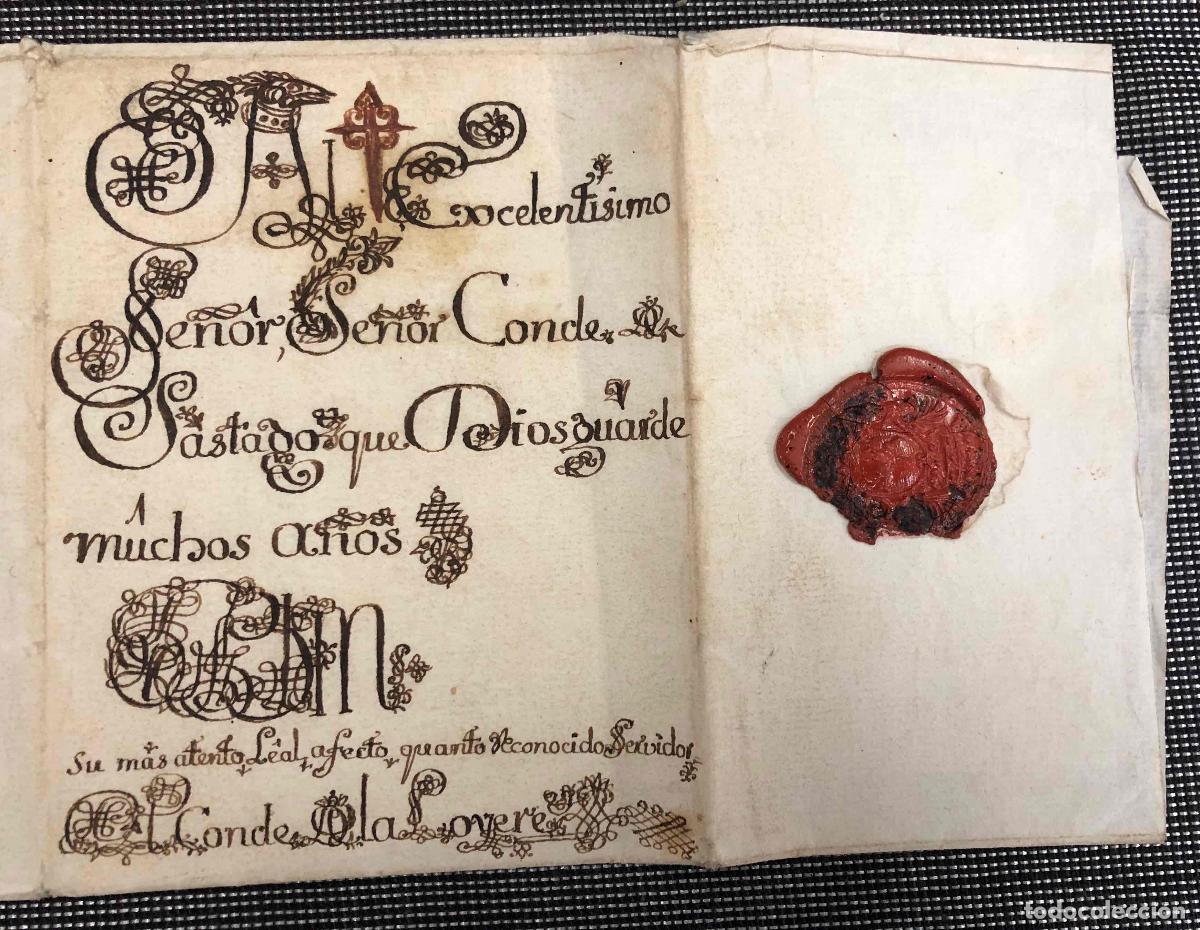 Al Excelentisimo
Señor, Señor Conde De
Sastago que Dios guarde
muchos años
su más atento, Leal, afecto, quanto Reconocido Servidor
El Conde De la Loyere
todocolección